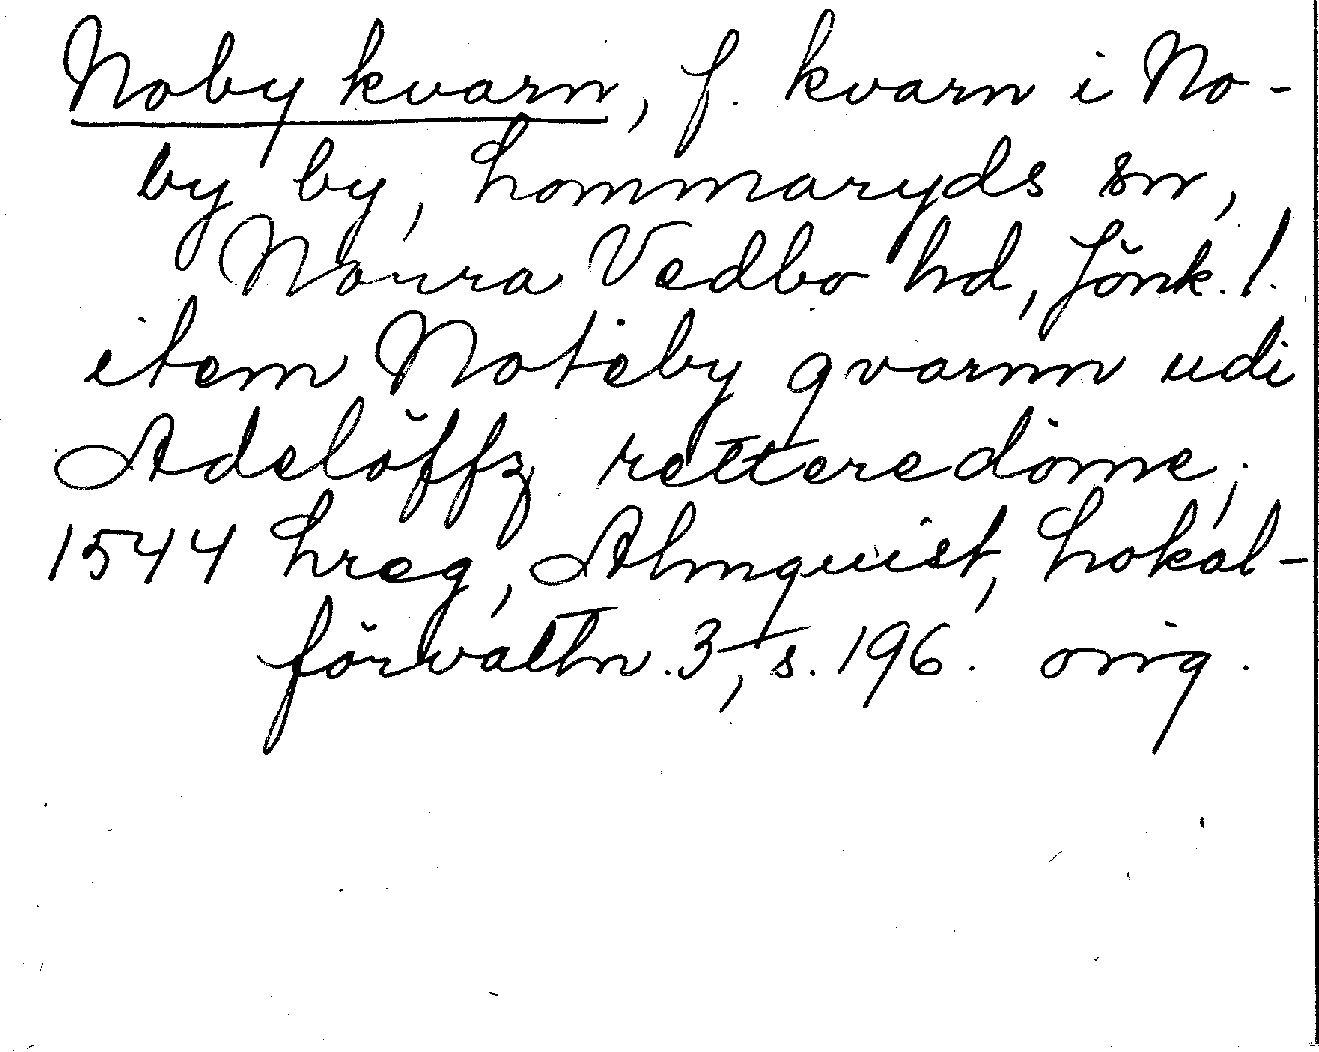 Noby kvarn, f. kvarn i No-
by by, Lommaryds sn,
Norra Vedbo hd, Jönk. l.
item Noteby qvarnn udi
Adelöffz retteredöme,
1544 Lreg, Almquist, Lokal-
förvaltn. 3, s. 196. orig.